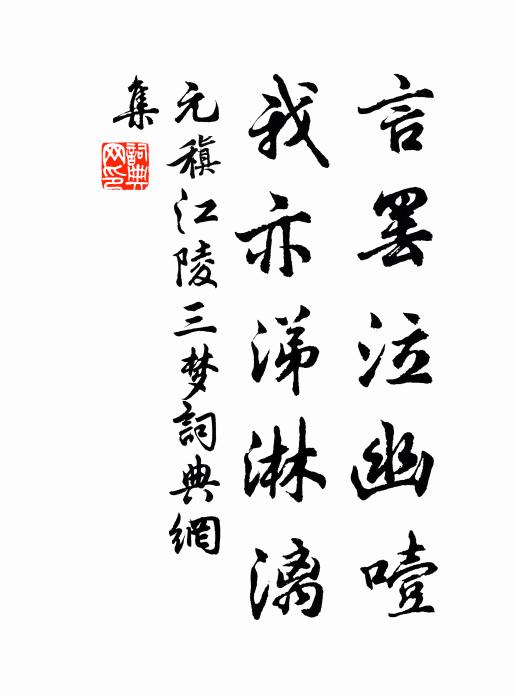 言罢泣幽噎
我亦涕淋漓
元稹江陵三梦詞典網
集
詞典
网印